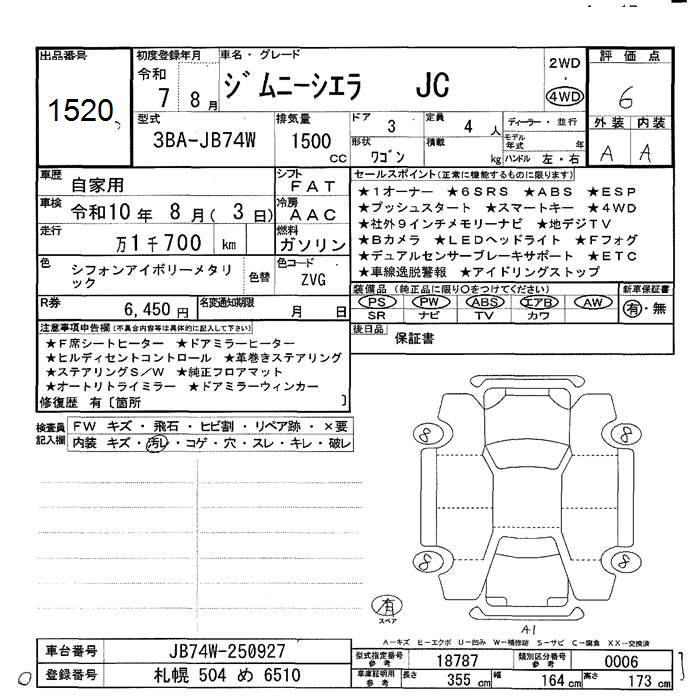 出品番号
1520
初度登録年月
令和
7 8 月
車名・グレード
ジムニーシエラ JC
2WD
・
4WD
評価点
6
外装 内装
A A
型式
3BA-JB74W
排気量
1500
CC
ドア 3
定員 4 人
形状 ワゴン
積載 kg
ディーラー・並行
モデル年式 年
ハンドル 左・右
車歴 自家用
シフト FAT
車検 令和10 年 8 月( 3 日)
冷房 AAC
走行 万1千700 km
燃料 ガソリン
色 シフォンアイボリーメタリック
色替
色コード ZVG
R券 6,450 円
名変通知期限 月 日
セールスポイント(正常に機能するものに限ります)
★1オーナー ★6SRS ★ABS ★ESP
★プッシュスタート ★スマートキー ★4WD
★社外9インチメモリーナビ ★地デジTV
★Bカメラ ★LEDヘッドライト ★Fフォグ
★デュアルセンサーブレーキサポート ★ETC
★車線逸脱警報 ★アイドリングストップ
装備品 (純正品に限り○をつけてください)
新車保証書
PS PW ABS エアB AW
SR ナビ TV カワ
有・無
後日品 保証書
注意事項申告欄(不具合内容等は具体的に記入して下さい)
★F席シートヒーター ★ドアミラーヒーター
★ヒルディセントコントロール ★革巻きステアリング
★ステアリングS/W ★純正フロアマット
★オートリトライミラー ★ドアミラーウィンカー
修復歴 有〔箇所 〕
検査員記入欄
FW キズ・飛石・ヒビ割・リペア跡・×要
内装 キズ・汚レ・コゲ・穴・スレ・キレ・破レ
8 8
8 8
有
スペア
A1
A-キズ E-エクボ U-凹み W-補修跡 S-サビ C-腐食 XX-交換済
車台番号 JB74W-250927
登録番号 札幌 504 め 6510
型式指定番号 参考 18787
類別区分番号 参考 0006
車庫証明用 参考 長さ 355 cm 幅 164 cm 高さ 173 cm